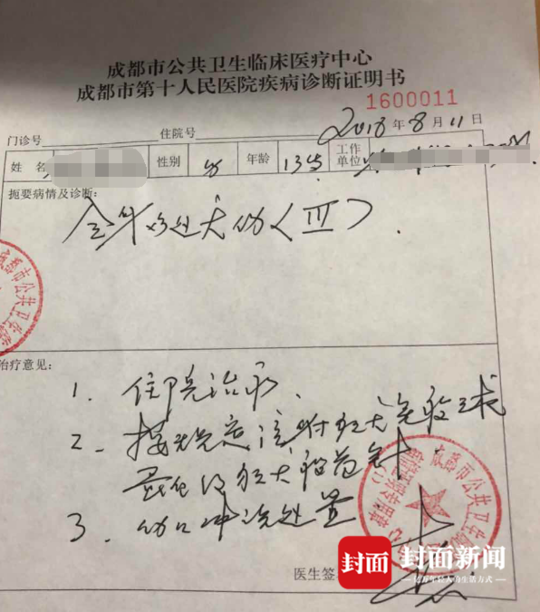 成都市公共卫生临床医疗中心
成都市第十人民医院疾病诊断证明书
1600011
门诊号 住院号 2018年8月11日
姓名 性别 女 年龄 13岁 工作单位
扼要病情及诊断:
全身多处犬伤(III).
治疗意见:
1. 住院治疗.
2. 按规定注射狂犬免疫球
蛋白及狂犬疫苗针.
3. 伤口冲洗处置
医生签
封面 封面新闻
亿万年轻人的生活方式
成都市公共卫生